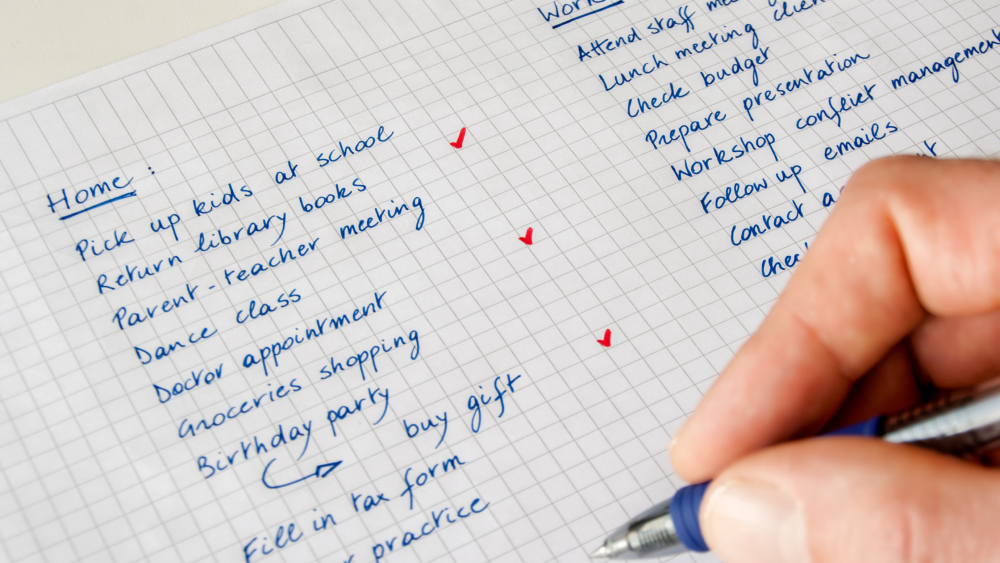 Home :
Pick up kids at school
Return library books
Parent-teacher meeting
Dance class
Doctor appointment
Groceries shopping
Birthday party
buy gift
Fill in tax form
practice
Attend staff
Lunch meeting
Check budget
Prepare presentation
Workshop conflict management
Follow up emails
Contact